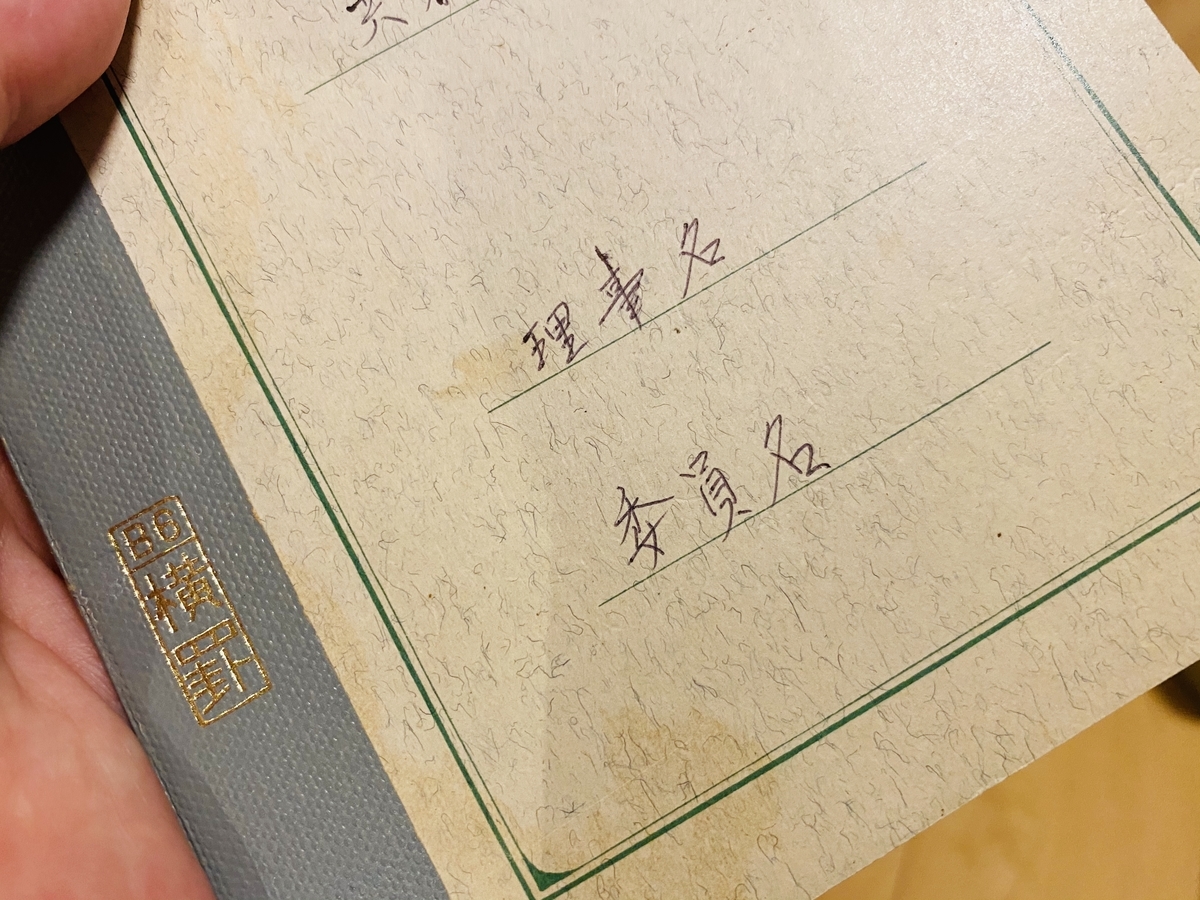 理事名
委員名
B6
横
罫